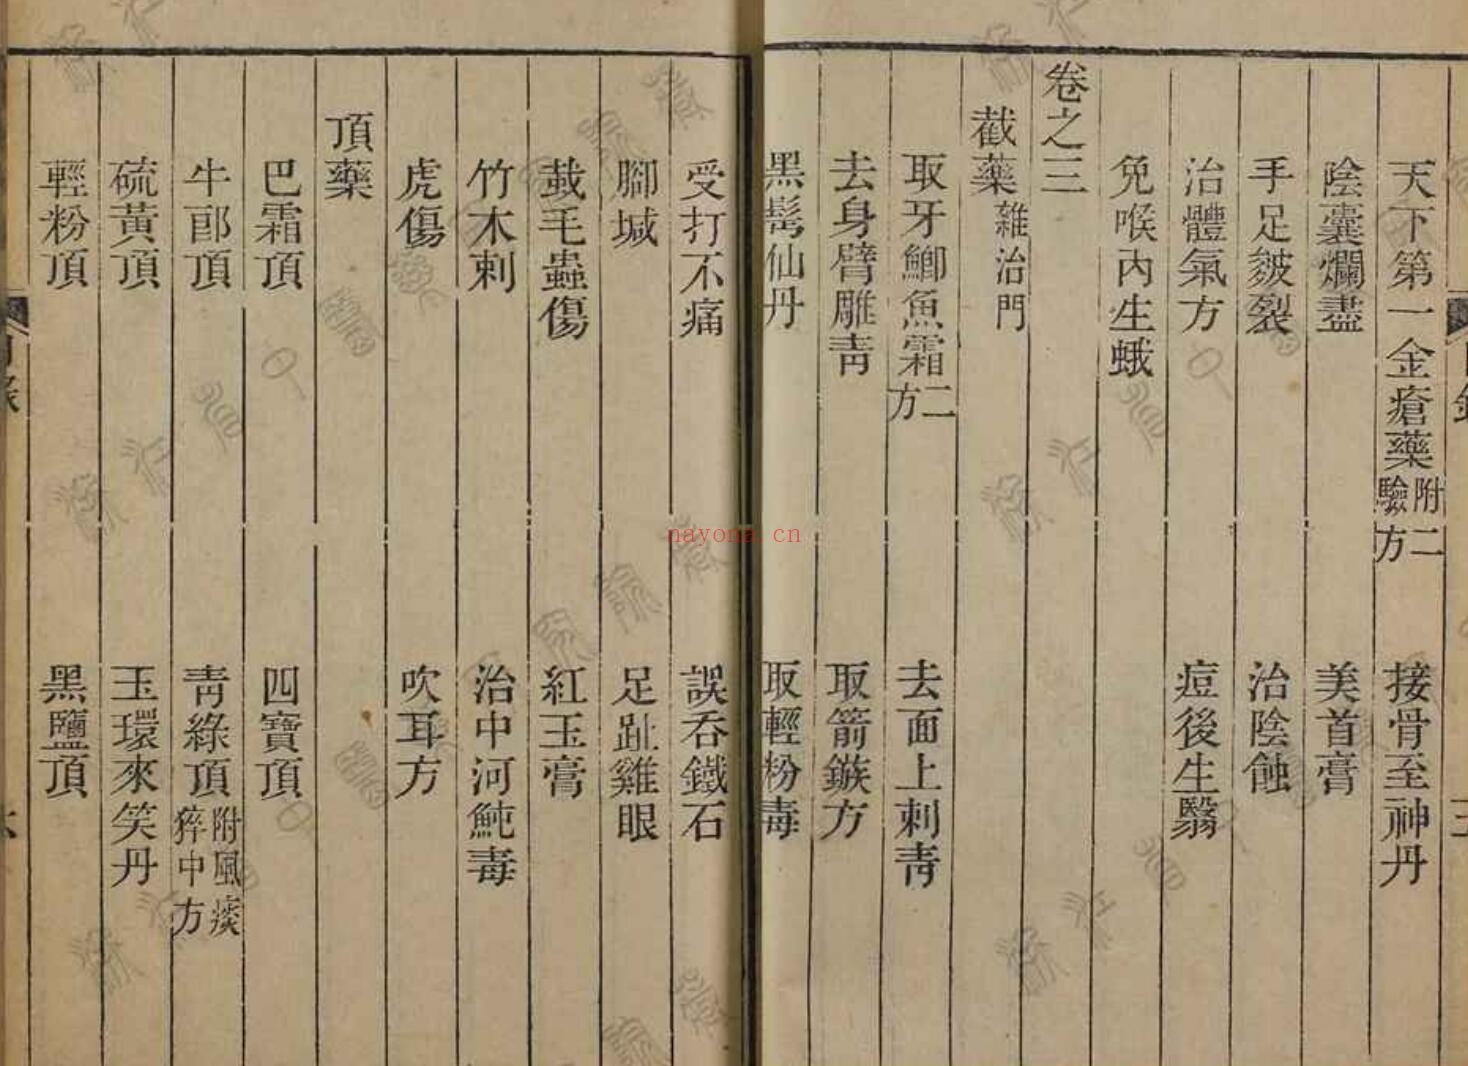 天下第一金瘡藥附二驗方 接骨至神丹
陰囊爛盡 美首膏
手足皴裂 治陰蝕
治體氣方 痘後生翳
兔喉內生蛾
卷之三
截藥雜治門
取牙鯽魚霜二方 去面上刺青
去身臂雕青 取箭鏃方
黑髩仙丹 取輕粉毒
受打不痛 誤吞鐵石
腳墄 足趾雞眼
蛓毛蟲傷 紅玉膏
竹木刺 治中河魨毒
虎傷 吹耳方
頂藥
巴霜頂 四寶頂
牛郎頂 青綠頂附風痰猝中方
硫黃頂 玉環來笑丹
輕粉頂 黑鹽頂
nayona.cn